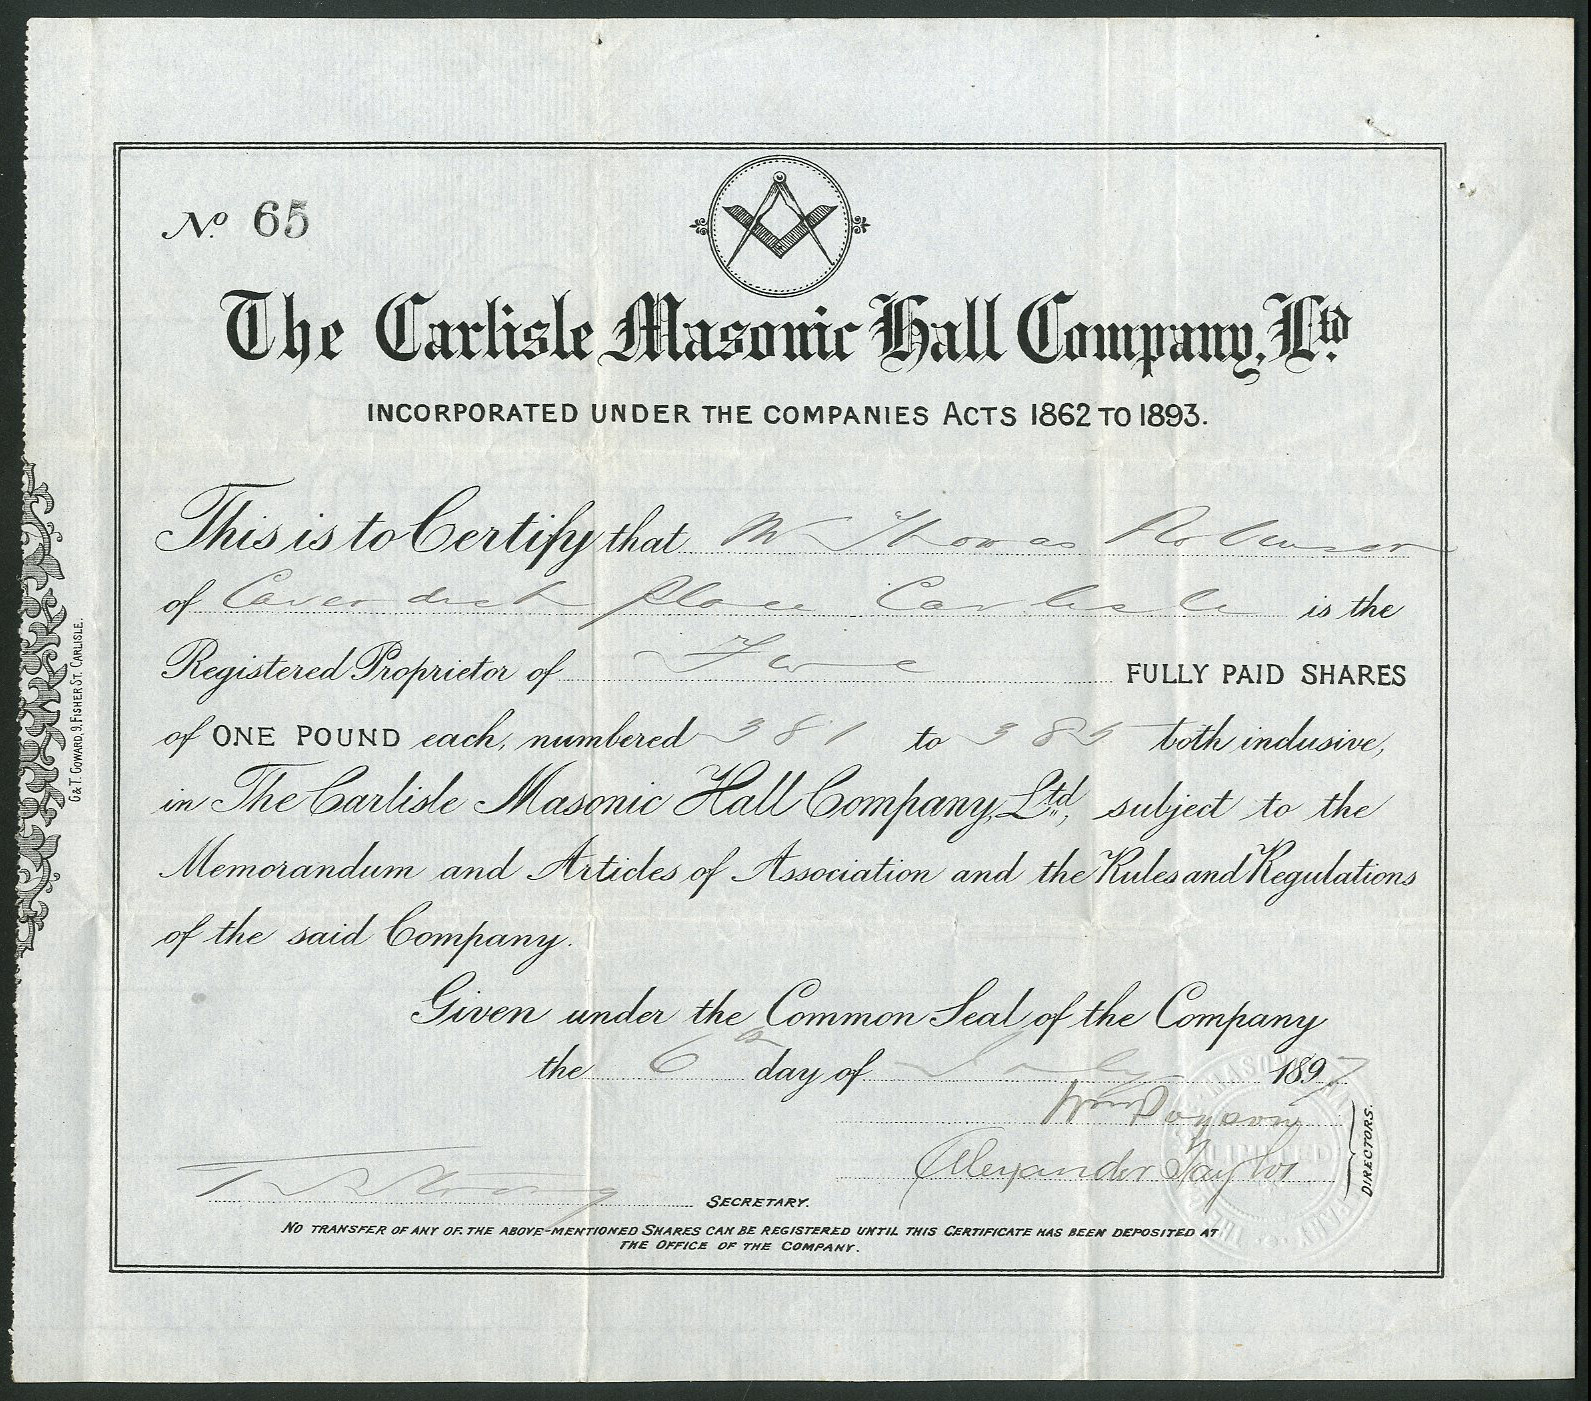 No. 65
The Carlisle Masonic Hall Company, Ltd.
INCORPORATED UNDER THE COMPANIES ACTS 1862 TO 1893.
This is to Certify that Mr Thomas Robinson
of Cavendish Place Carlisle is the
Registered Proprietor of Five FULLY PAID SHARES
of ONE POUND each, numbered 381 to 385 both inclusive,
in The Carlisle Masonic Hall Company, Ltd., subject to the
Memorandum and Articles of Association and the Rules and Regulations
of the said Company.
Given under the Common Seal of the Company
the 6th day of July 1897
Alexander Taylor
DIRECTORS.
SECRETARY.
NO TRANSFER OF ANY OF THE ABOVE-MENTIONED SHARES CAN BE REGISTERED UNTIL THIS CERTIFICATE HAS BEEN DEPOSITED AT
THE OFFICE OF THE COMPANY.
G & T. COWARD, 9, FISHER ST. CARLISLE.
LIMITED